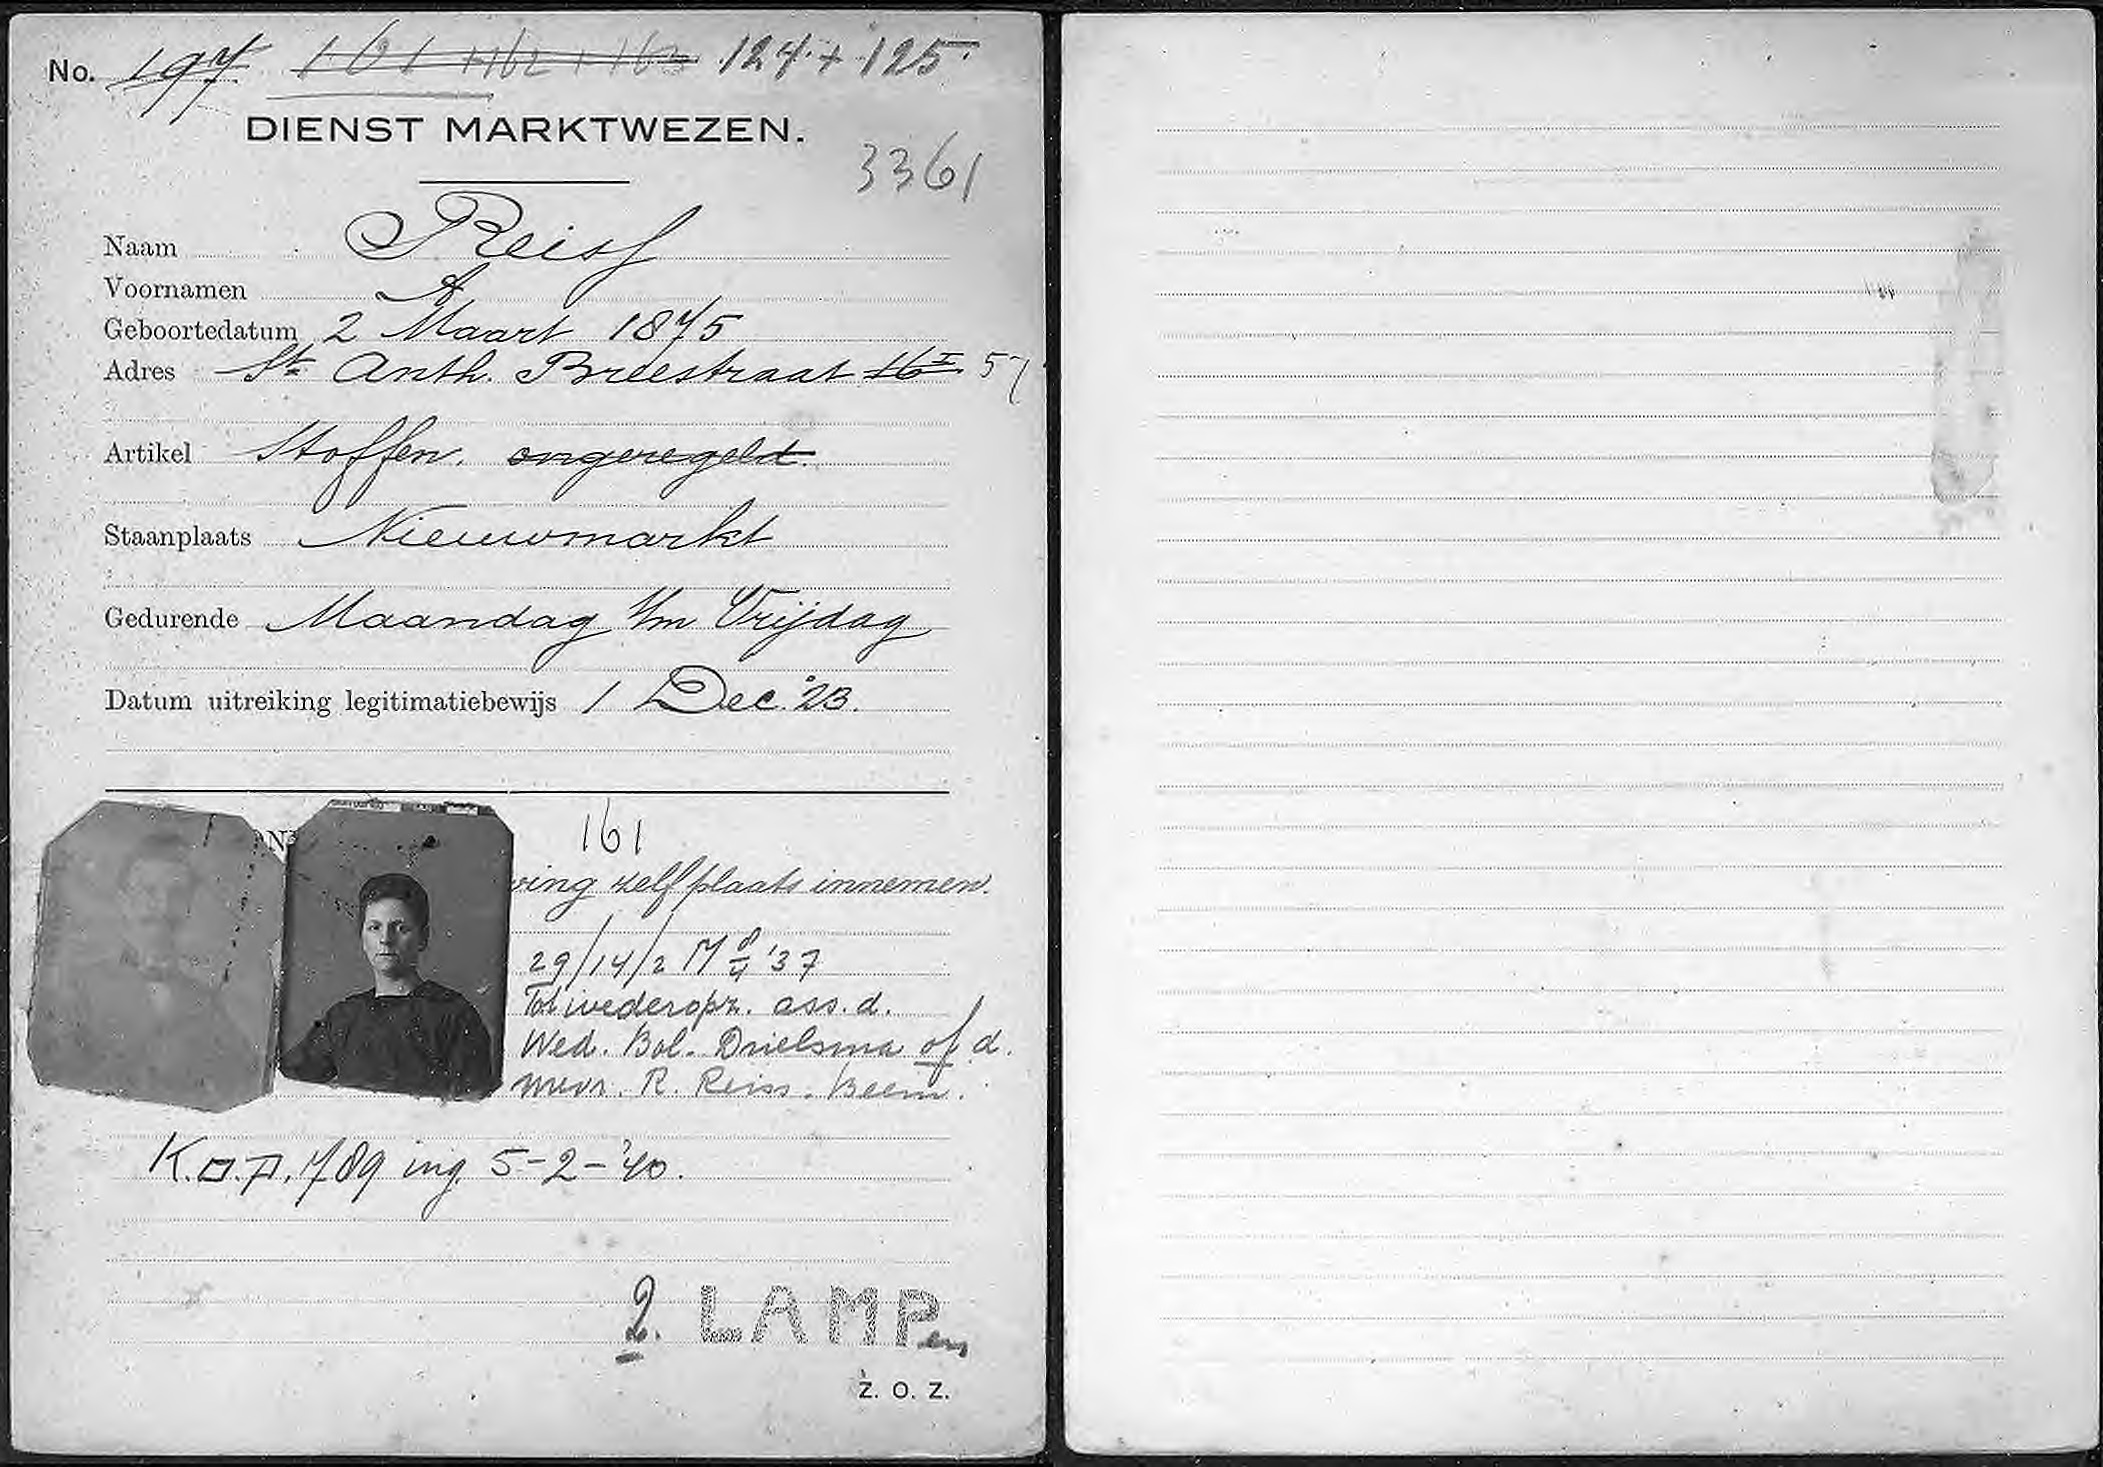 No. 197. 161 + 162 + 163 124 + 125.
DIENST MARKTWEZEN.
3361
Naam Reiss
Voornamen A
Geboortedatum 2 Maart 1875
Adres St. Anth. Breestraat 16 I 57
Artikel Stoffen. ongeregeld.
Staanplaats Nieuwmarkt
Gedurende Maandag t/m Vrijdag
Datum uitreiking legitimatiebewijs 1 Dec. '23.
161
ving zelf plaats innemen.
29/14/2 M 8/4 '37
Tot wederopz. ass. d.
Wed. Bol. Drielsma of d.
mevr. R. Reiss. Beem.
789 ing. 5-2-'40.
2. LAMPen
Z. O. Z.